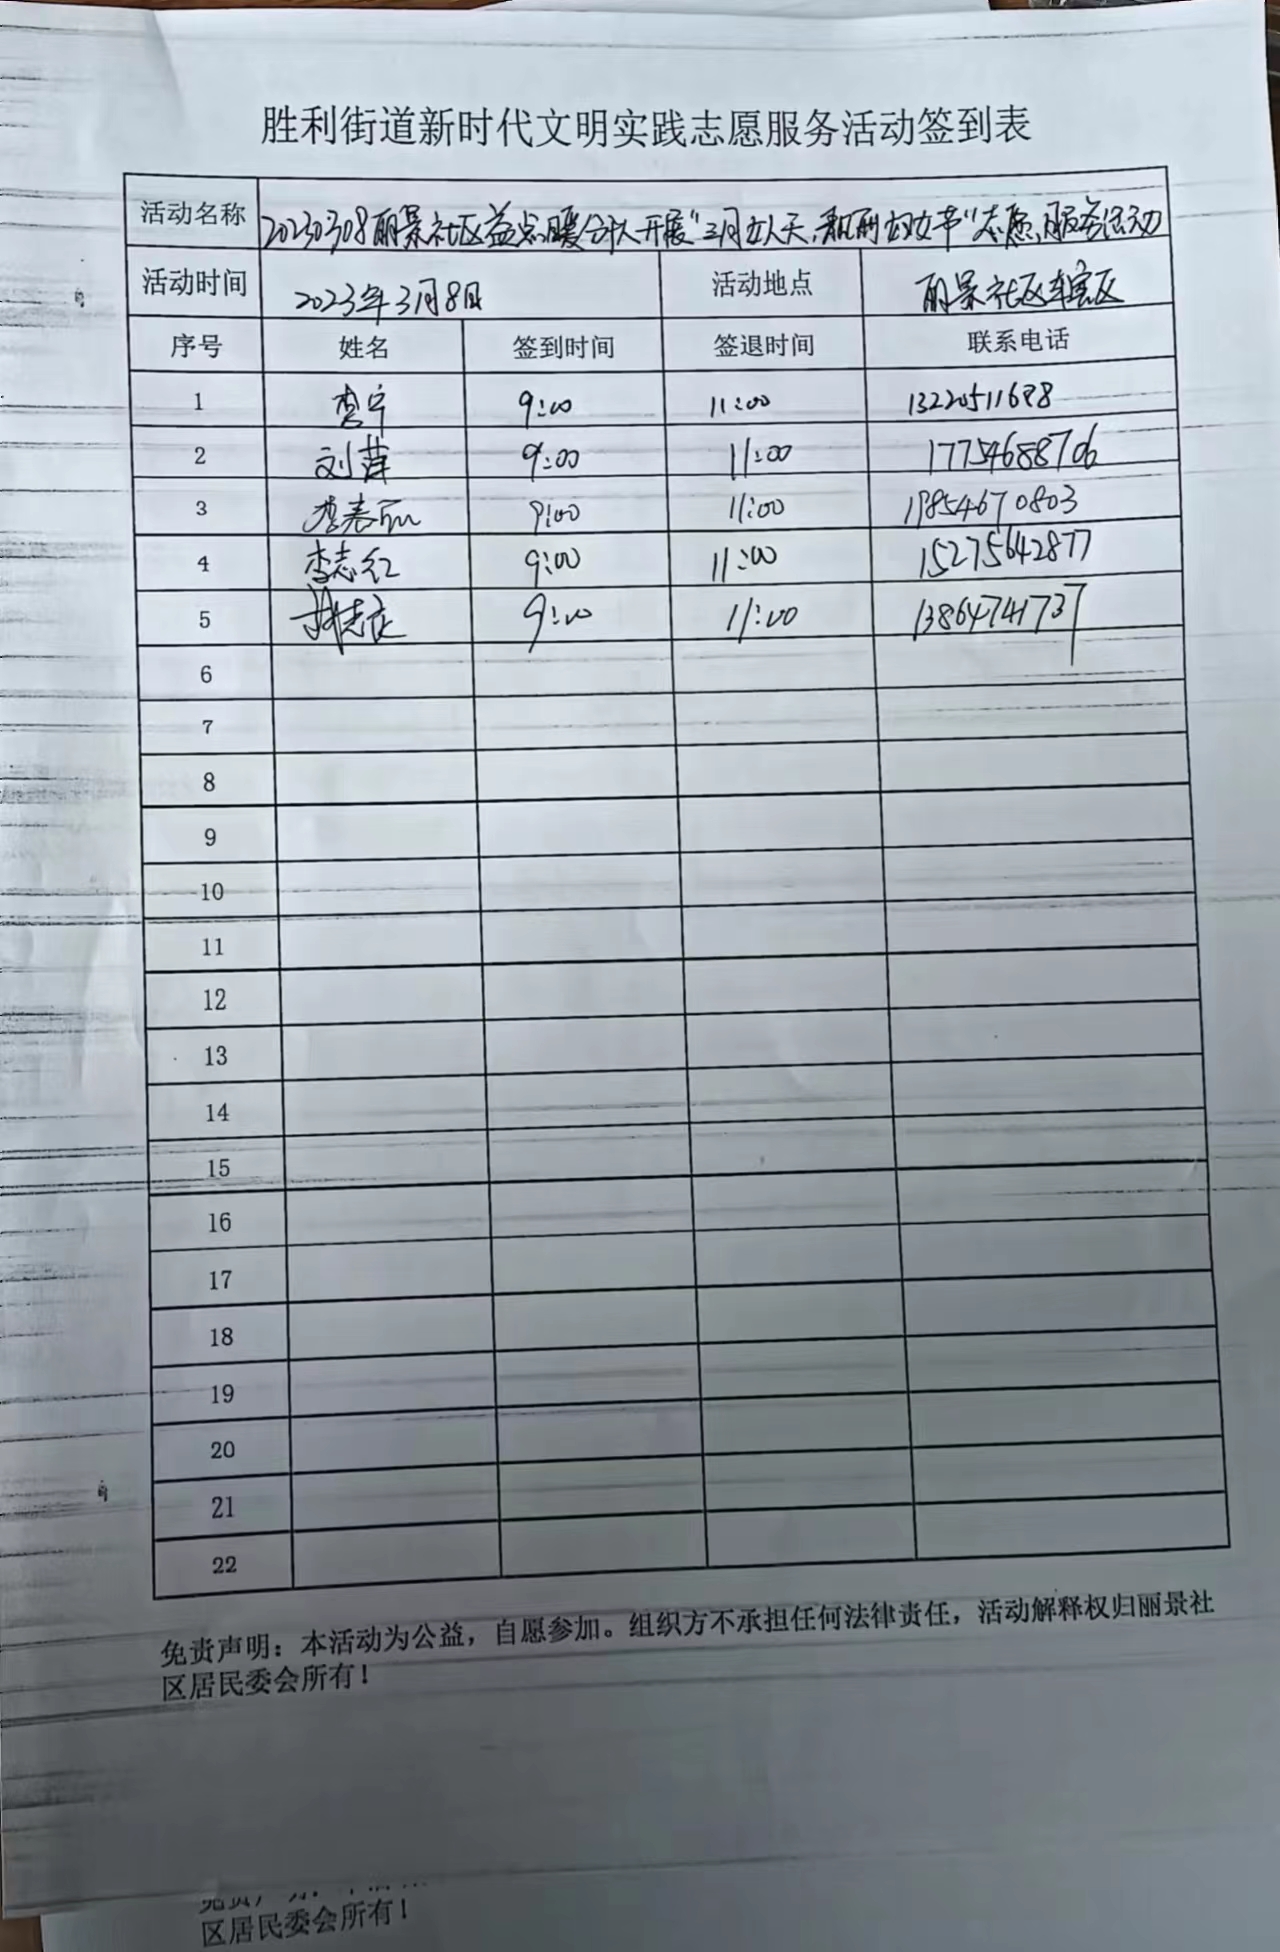 胜利街道新时代文明实践志愿服务活动签到表
活动名称 20230308丽景社区益点暖分队开展"三月女人天,靓丽妇女节"志愿服务活动
活动时间 2023年3月8日 活动地点 丽景社区辖区
序号 姓名 签到时间 签退时间 联系电话
1 李宁 9:00 11:00 13220511688
2 刘萍 9:00 11:00 17754688706
3 9:00 11:00 19854670803
4 李志红 9:00 11:00 15275642877
5 9:00 11:00 13864741737
6
7
8
9
10
11
12
13
14
15
16
17
18
19
20
21
22
免责声明：本活动为公益，自愿参加。组织方不承担任何法律责任，活动解释权归丽景社
区居民委会所有！
区居民委会所有！